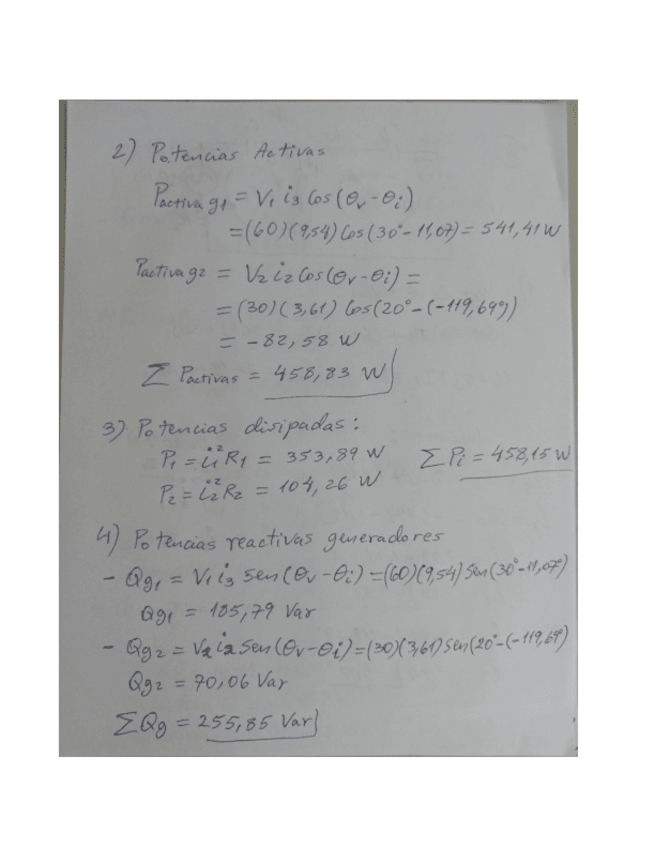 2) Potencias Activas
Pactiva g1 = V1 i3 Cos(θv-θi)
=(60)(9,54) Cos(30°-11,07)= 541,41W
Pactiva g2 = V2 i2 Cos(θv-θi)=
= (30)(3,61) Cos(20°-(-119,69°))
= -82,58 W
Σ Pactivas = 458,83 W
3) Potencias disipadas:
P1 = i1² R1 = 353,89 W Σ Pi = 458,15 W
P2 = i2² R2 = 104,26 W
4) Potencias reactivas generadores
- Qg1 = V1 i3 sen(θv-θi)=(60)(9,54) Sen(30°-11,07°)
Qg1 = 185,79 Var
- Qg2 = V2 i2 Sen(θv-θi)=(30)(3,61) Sen(20°-(-119,69°)
Qg2 = 70,06 Var
Σ Qg = 255,85 Var